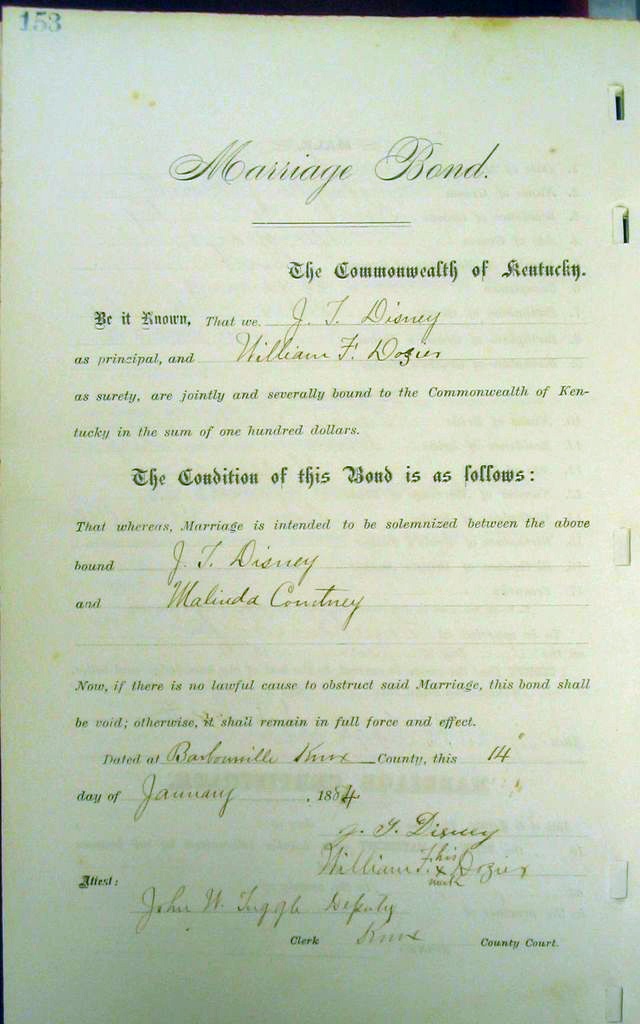 153
Marriage Bond.
The Commonwealth of Kentucky.
Be it Known, That we J. T. Disney
as principal, and William F. Dozier
as surety, are jointly and severally bound to the Commonwealth of Ken-
tucky in the sum of one hundred dollars.
The Condition of this Bond is as follows:
That whereas, Marriage is intended to be solemnized between the above
bound J. T. Disney
and Malinda Countney
Now, if there is no lawful cause to obstruct said Marriage, this bond shall
be void; otherwise, it shall remain in full force and effect.
Dated at Barbourville Knox County, this 14"
day of January, 1884
J. T. Disney
William F. his x mark Dozier
Attest:
John W. Tuggle Deputy
Clerk Knox County Court.